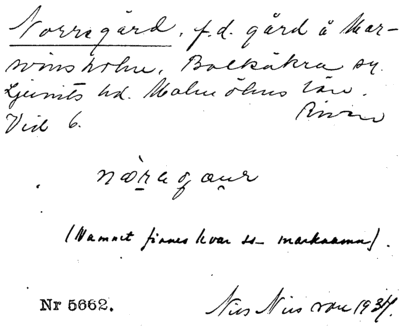 Norregård, f.d. gård å Mar-
vinsholm, Balkåkra sn.
Ljunits hd. Malmöhus län.
Vid 6. Riven
næ̱ragɑu̯r
(Namnet finnes kvar ss marknamn).
Nr 5662. Nils Nilsson 1934.